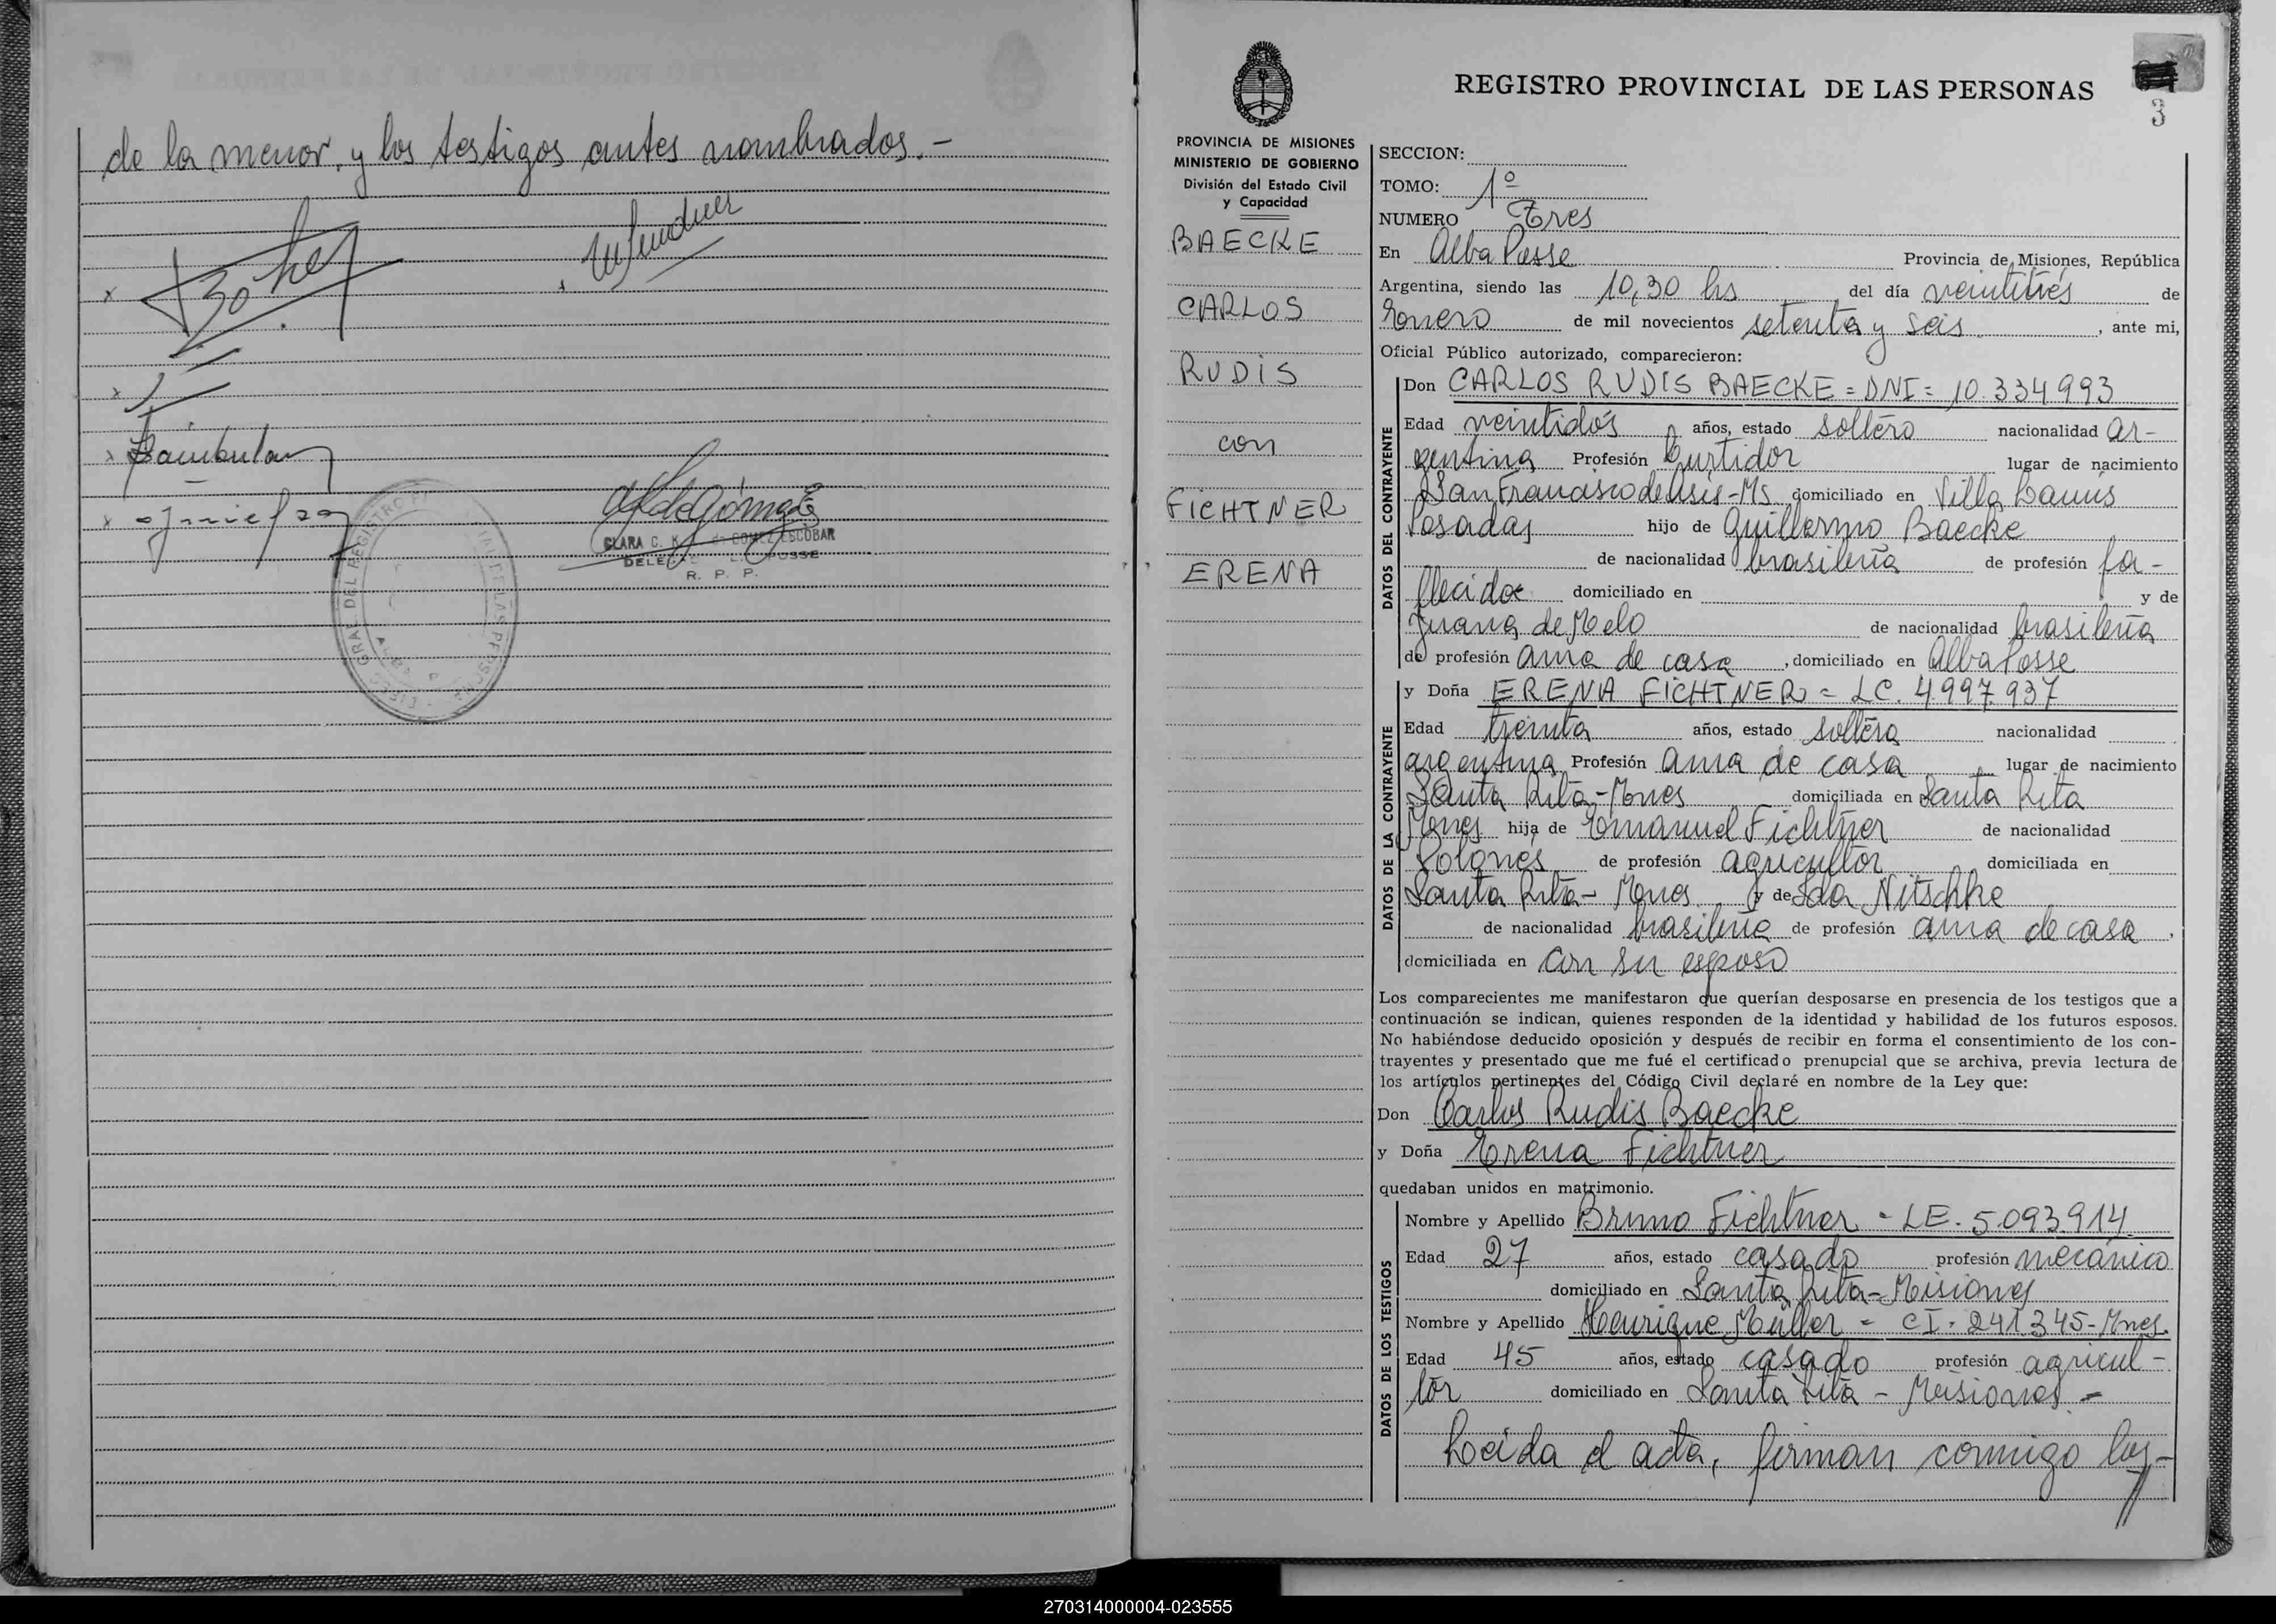 de la menor, y los testigos antes nombrados.-
CLARA C. K. de GOMEZ ESCOBAR
R. P. P.
REGISTRO PROVINCIAL DE LAS PERSONAS
3
PROVINCIA DE MISIONES
MINISTERIO DE GOBIERNO
División del Estado Civil
y Capacidad
BAECKE
CARLOS
RUDIS
con
FICHTNER
ERENA
SECCION:
TOMO: 1º
NUMERO Tres
En Alba Posse Provincia de Misiones, República
Argentina, siendo las 10,30 hs del día veintitrés de
Enero de mil novecientos setenta y seis, ante mi,
Oficial Público autorizado, comparecieron:
DATOS DEL CONTRAYENTE
Don CARLOS RUDIS BAECKE = DNI = 10.334.993
Edad veintidós años, estado soltero nacionalidad ar-
gentina Profesión Curtidor lugar de nacimiento
San Francisco de Asis-Ms domiciliado en Villa Lanús
Posadas hijo de Guillermo Baecke
de nacionalidad brasileña de profesión fa-
llecido domiciliado en y de
Juana de Melo de nacionalidad brasileña
de profesión ama de casa, domiciliado en Alba Posse
DATOS DE LA CONTRAYENTE
y Doña ERENA FICHTNER = LC. 4.997.937
Edad treinta años, estado soltera nacionalidad
argentina Profesión ama de casa lugar de nacimiento
Santa Rita-Mnes domiciliada en Santa Rita
Mnes hija de Emanuel Fichtner de nacionalidad
Polonés de profesión agricultor domiciliada en
Santa Rita- Mnes y de Ida Nitschke
de nacionalidad brasileña de profesión ama de casa,
domiciliada en con su esposo
Los comparecientes me manifestaron que querían desposarse en presencia de los testigos que a
continuación se indican, quienes responden de la identidad y habilidad de los futuros esposos.
No habiéndose deducido oposición y después de recibir en forma el consentimiento de los con-
trayentes y presentado que me fué el certificado prenupcial que se archiva, previa lectura de
los artículos pertinentes del Código Civil declaré en nombre de la Ley que:
Don Carlos Rudis Baecke
y Doña Erena Fichtner
quedaban unidos en matrimonio.
DATOS DE LOS TESTIGOS
Nombre y Apellido Bruno Fichtner - LE. 5.093.914
Edad 27 años, estado casado profesión mecánico
domiciliado en Santa Rita-Misiones
Nombre y Apellido Henrique Müller - CI. 241345-Mnes.
Edad 45 años, estado casado profesión agricul-
tor domiciliado en Santa Rita - Misiones -
Leida el acta, firman conmigo los-
270314000004-023555